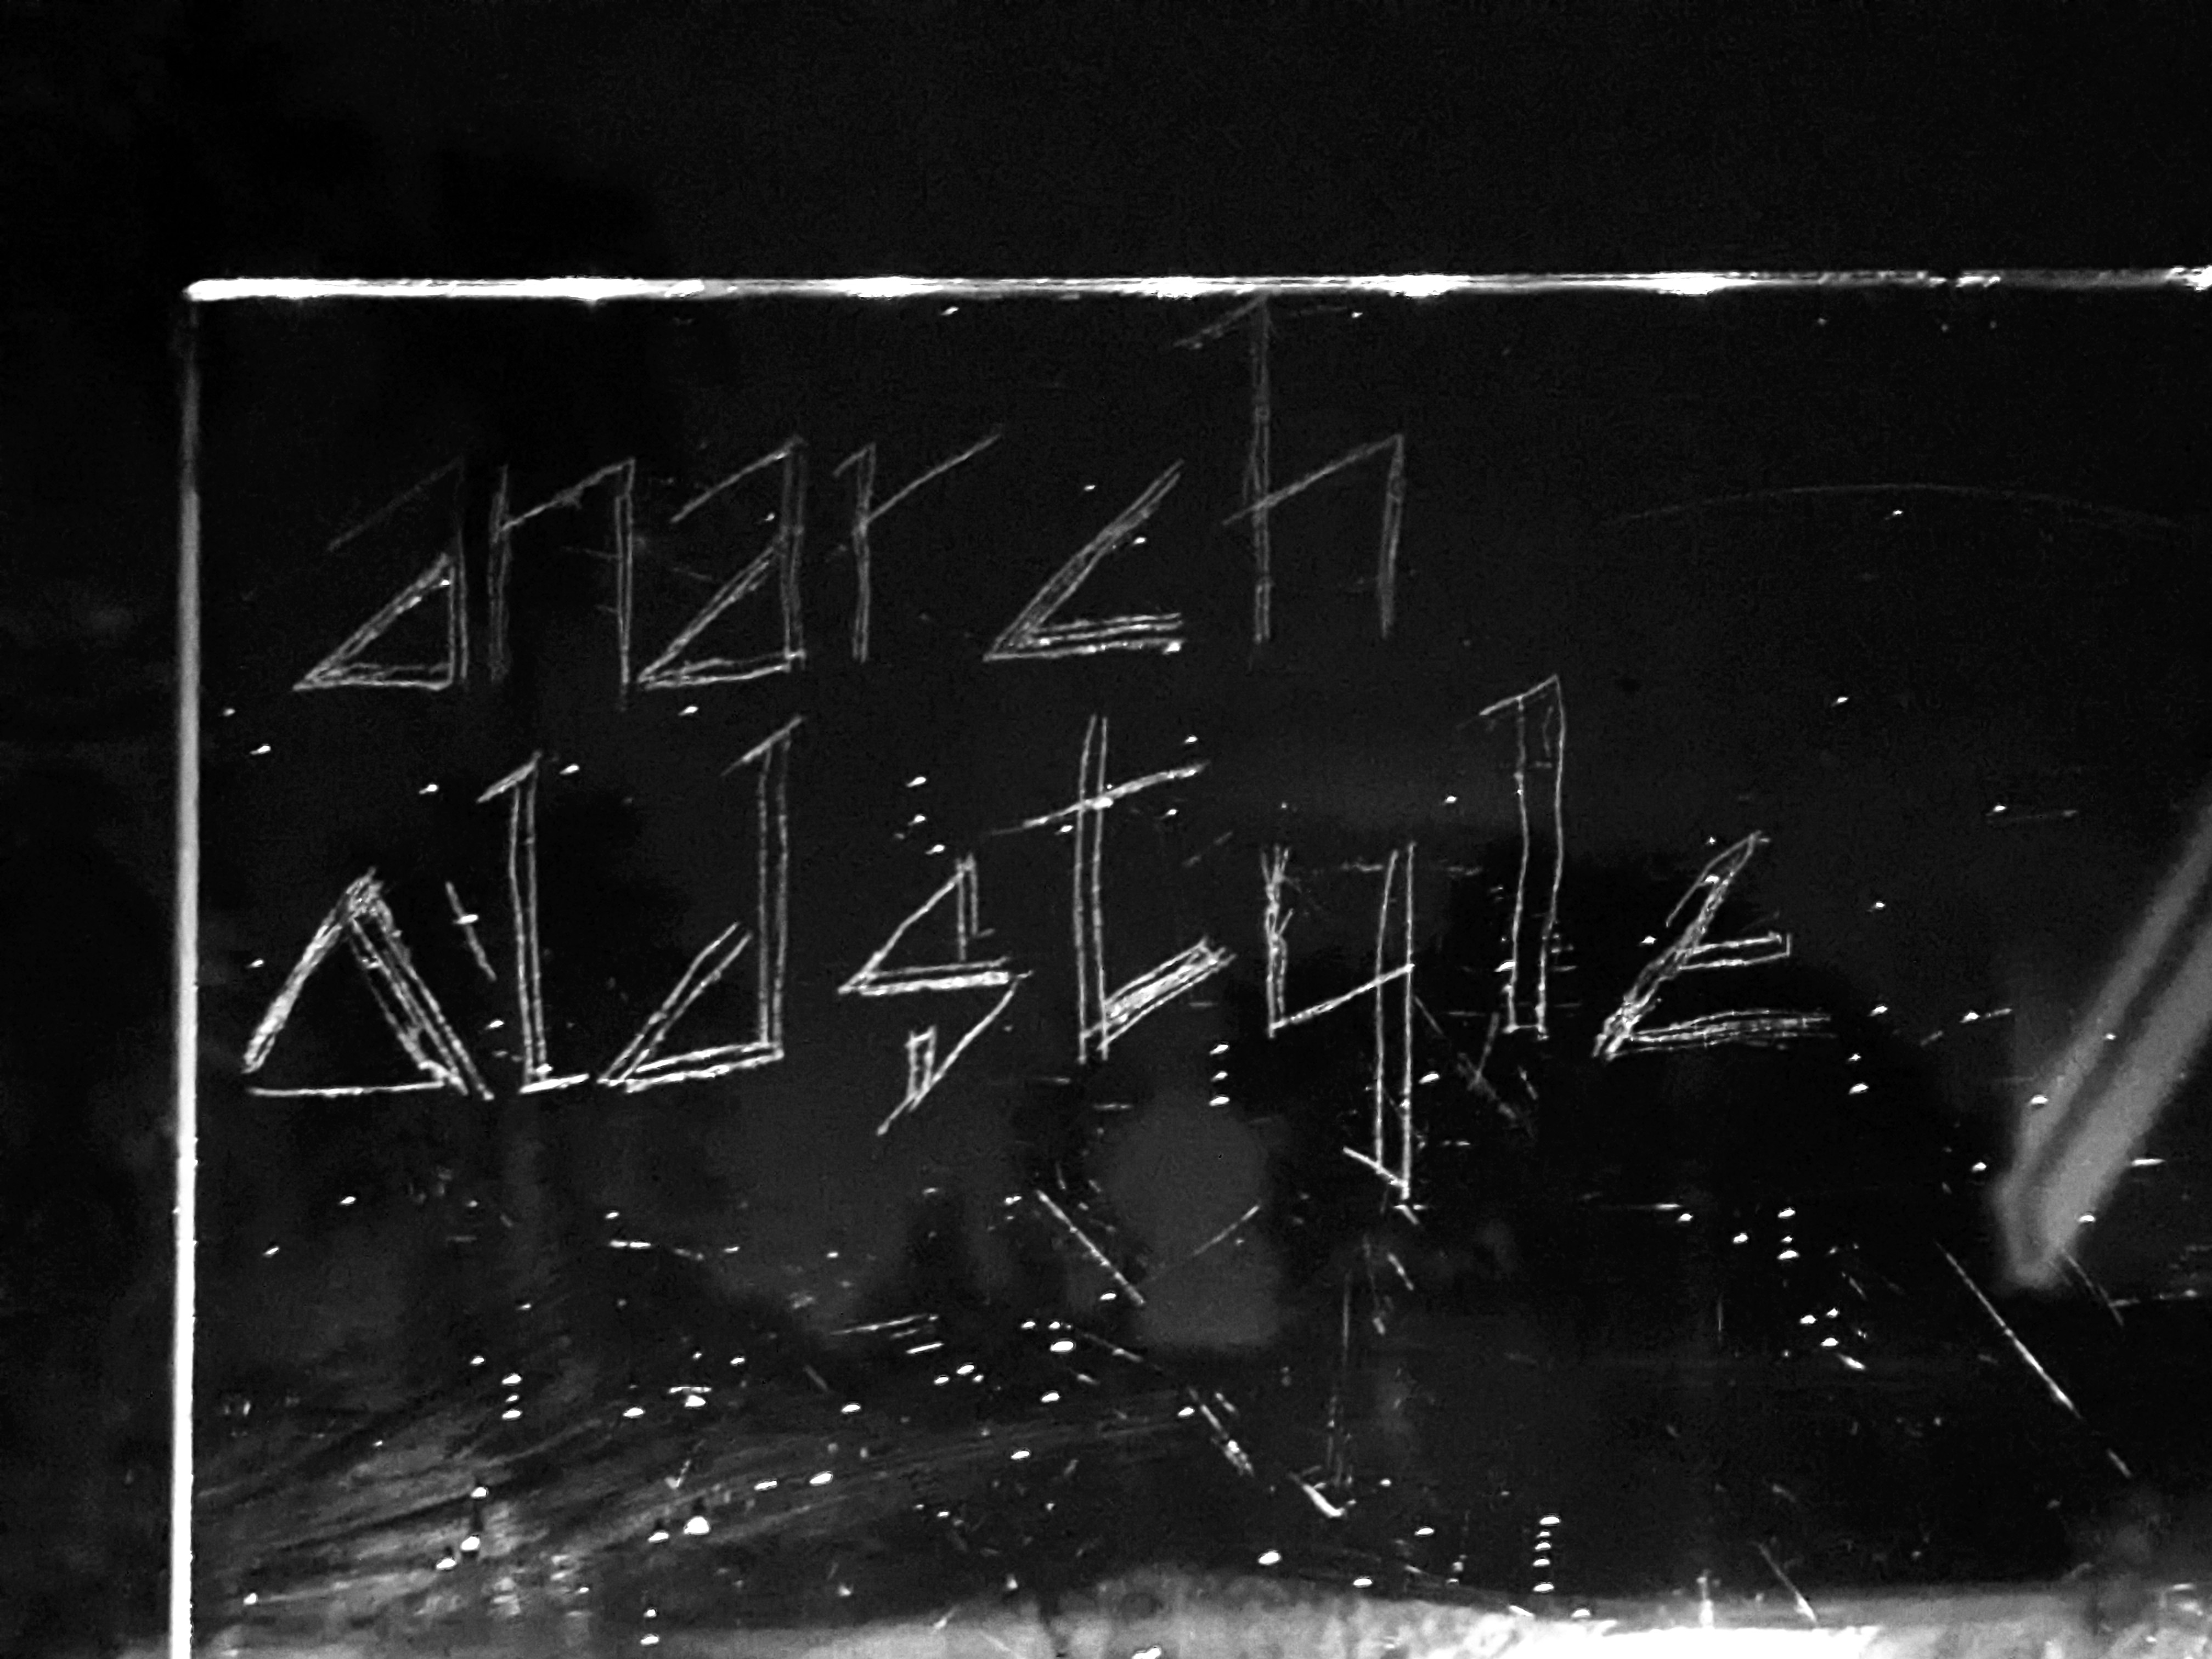 anarch
old style